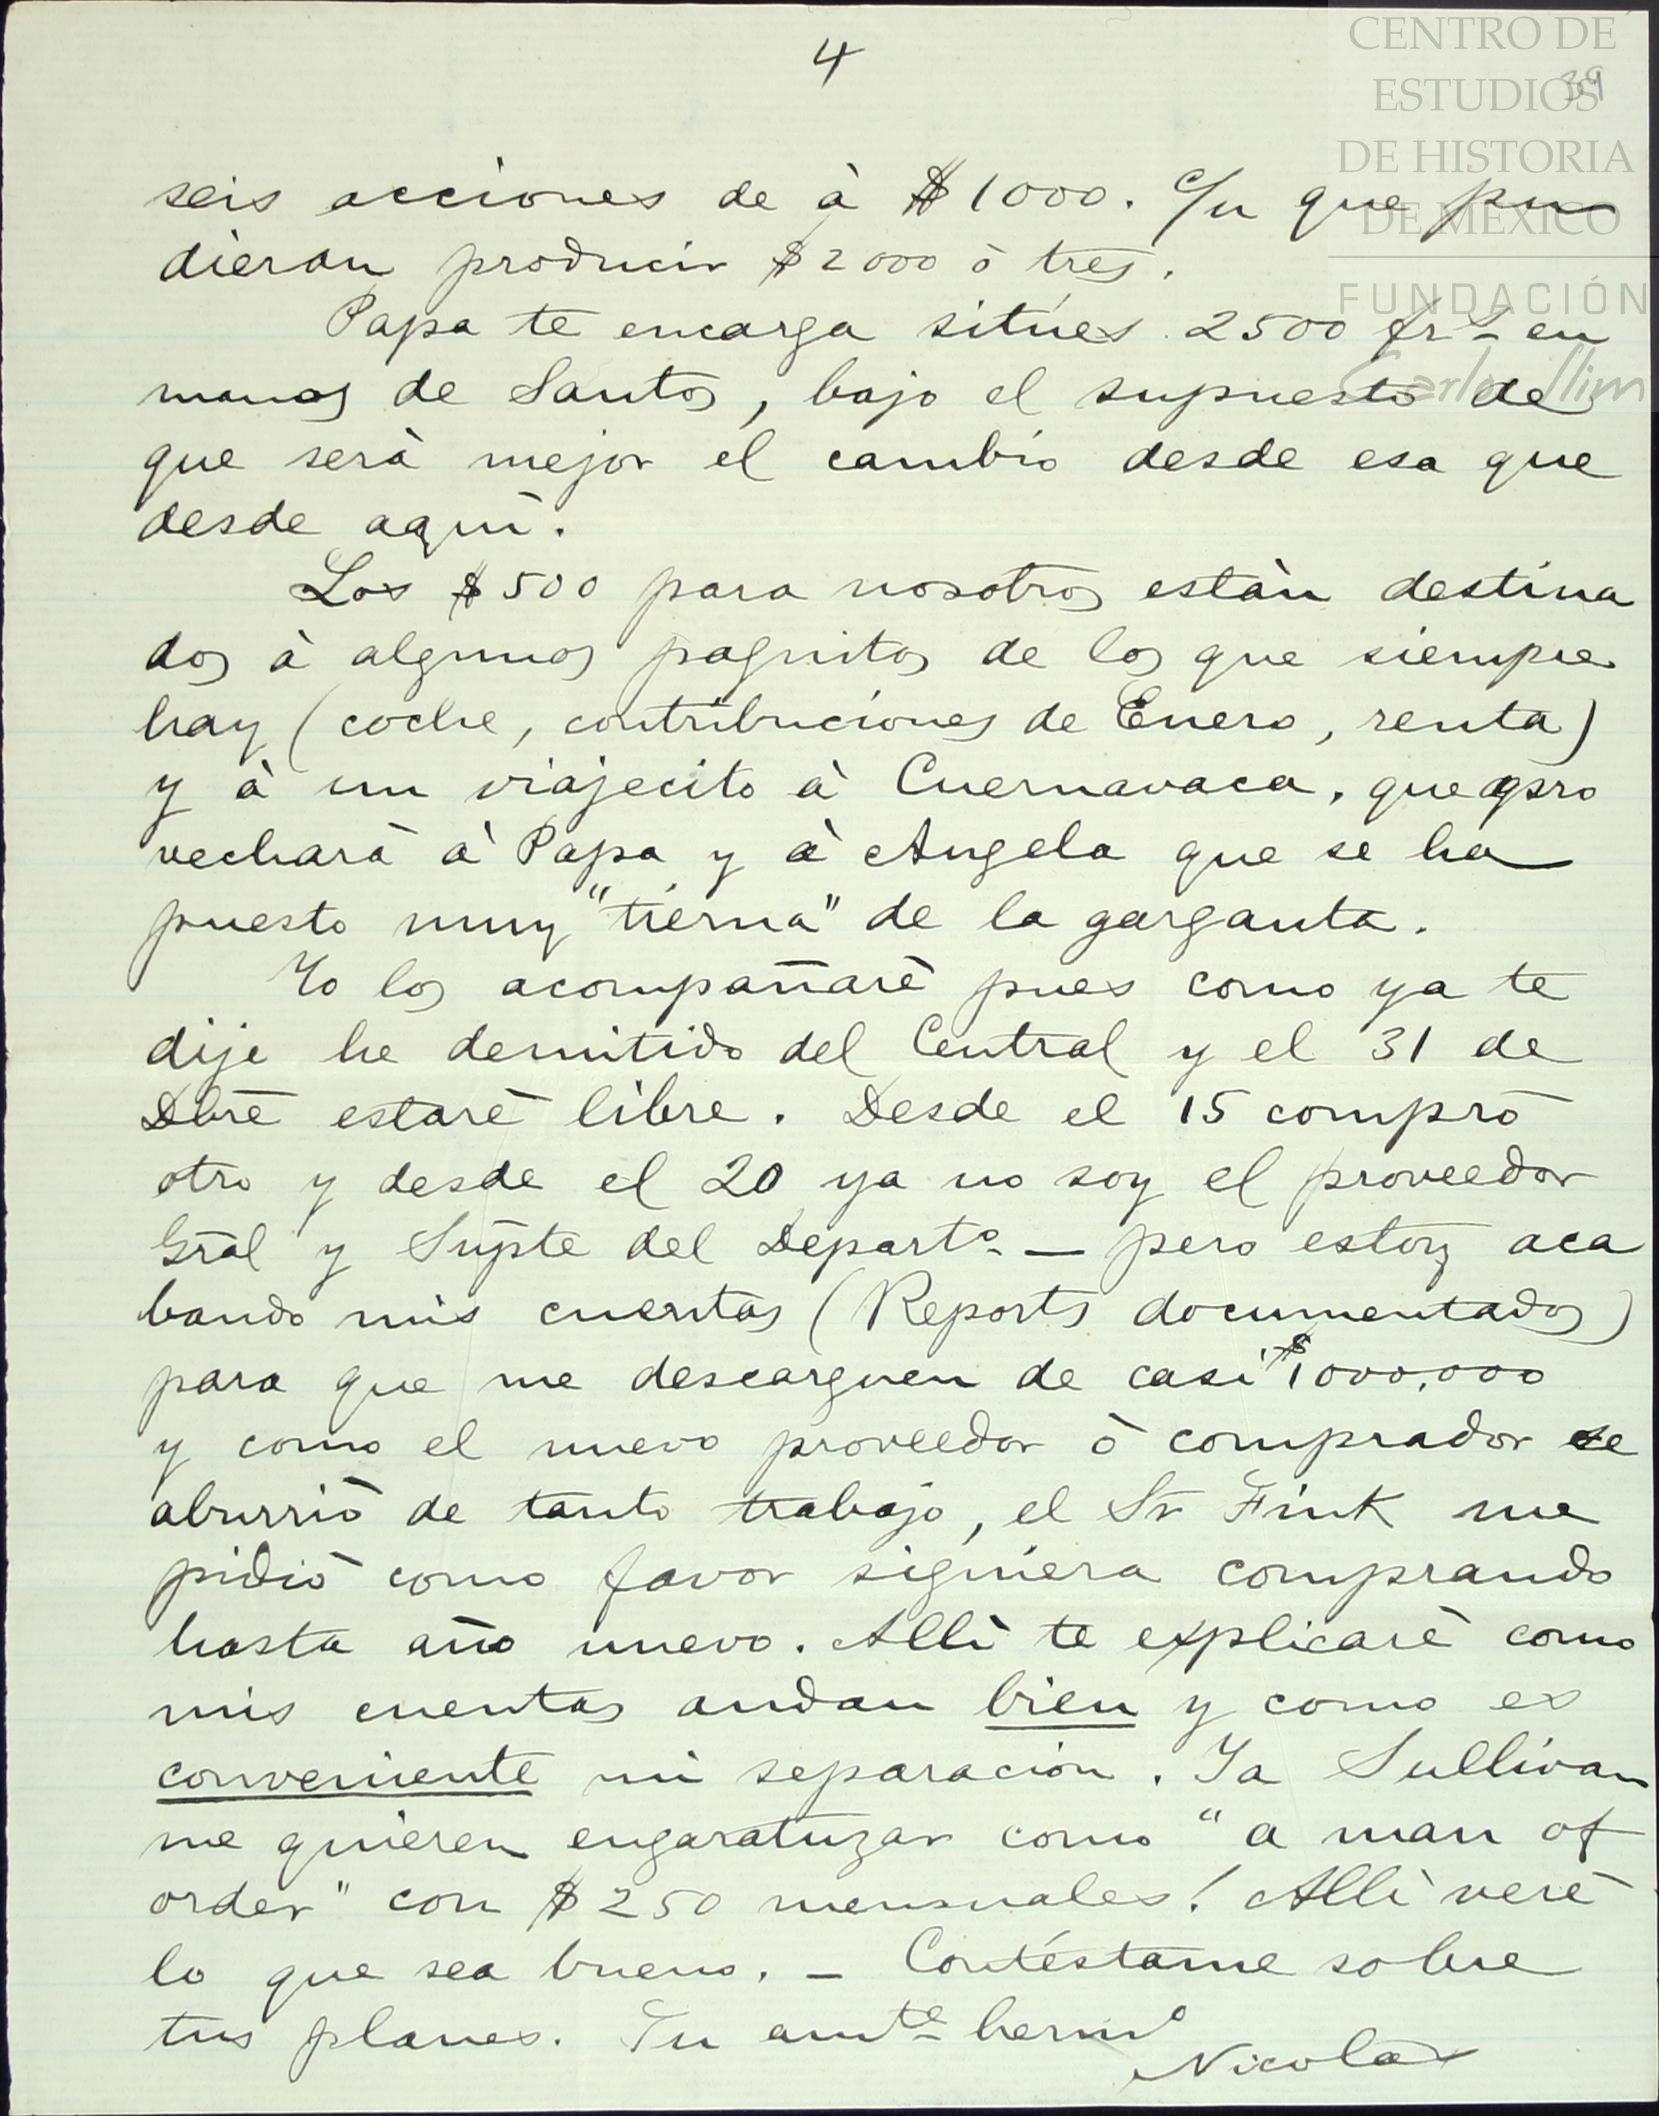 4
39
CENTRO DE
ESTUDIOS
DE HISTORIA
DE MÉXICO
FUNDACIÓN
Carlos Slim
seis acciones de à $1000. c/u que pu
dieran producir $2000 ò tres.
Papa te encarga sitúes 2500 frs en
manos de Santos, bajo el supuesto de
que serà mejor el cambio desde esa que
desde aquì.
Los $500 para nosotros estàn destina
dos à algunos paguitos de los que siempre
hay (coche, contribuciones de Enero, renta)
y à un viajecito à Cuernavaca, que apro
vecharà à Papa y à Angela que se ha
puesto muy "tierna" de la garganta.
Yo los acompañarè pues como ya te
dije he demitido del Central y el 31 de
Dbre estarè libre. Desde el 15 comprò
otro y desde el 20 ya no soy el proveedor
Gral y Supte del Departo. — pero estoy aca
bando mis cuentas (Reports documentados)
para que me descarguen de casi $1000,000
y como el nuevo proveedor ò comprador se
aburriò de tanto trabajo, el Sr Fink me
pidiò como favor siguiera comprando
hasta año nuevo. Allì te explicarè como
mis cuentas andan bien y como es
conveniente mi separaciòn. Ya Sullivan
me quieren engaratuzar como "a man of
order" con $250 mensuales! Allì verè
lo que sea bueno. — Contéstame sobre
tus planes. Tu amte hermo
Nicolas